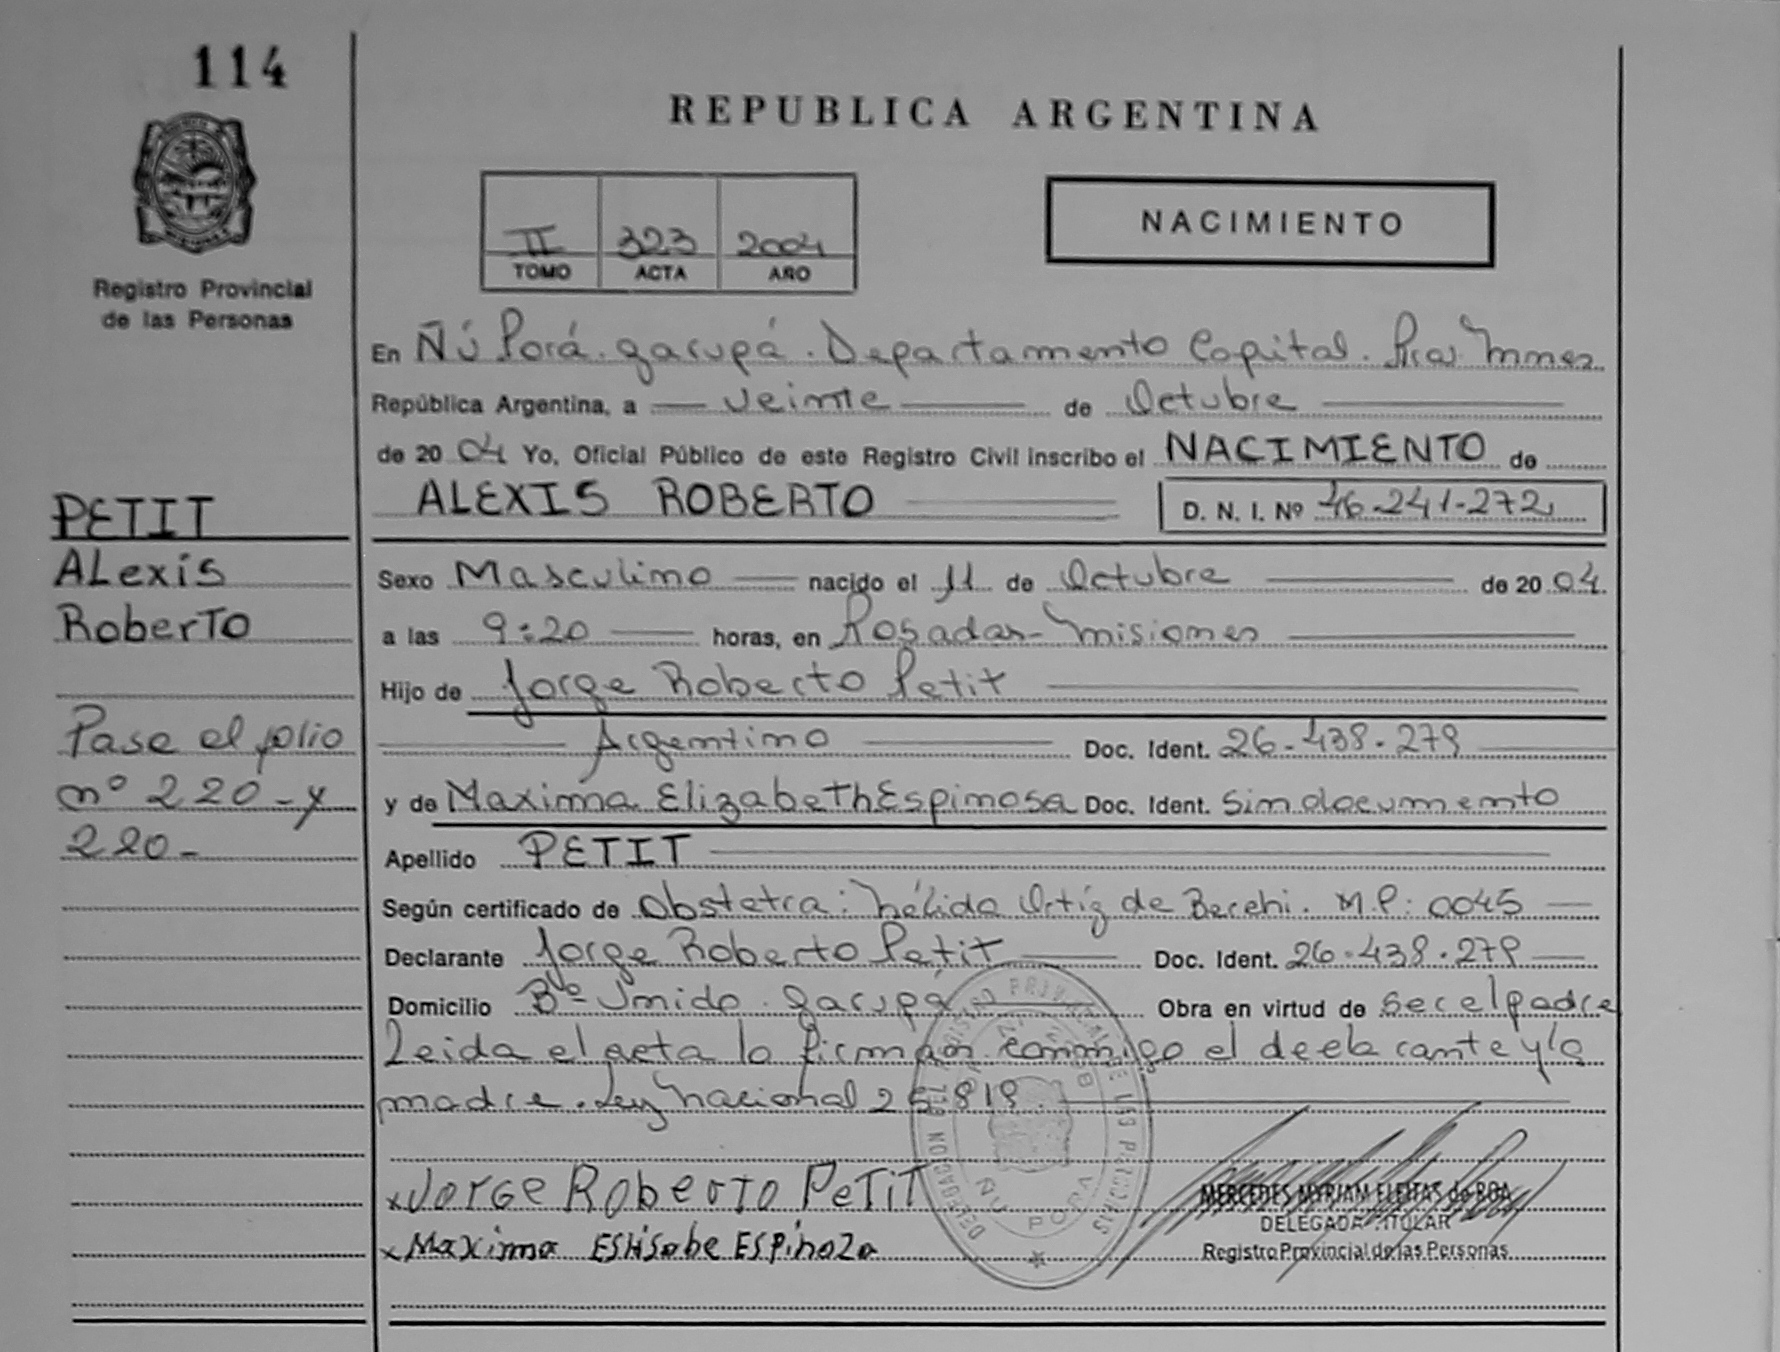 114
REPUBLICA ARGENTINA
II 323 2004
TOMO ACTA AÑO
NACIMIENTO
Registro Provincial
de las Personas
En Ñú Porá. Garupá. Departamento Capital. Pcia. Mnes
República Argentina, a veinte de Octubre
de 2004 Yo, Oficial Público de este Registro Civil inscribo el NACIMIENTO de
ALEXIS ROBERTO D. N. I. Nº 46-241-272
PETIT
Alexis
Roberto
Sexo Masculino nacido el 11 de Octubre de 2004.
a las 9:20 horas, en Posadas-Misiones
Hijo de Jorge Roberto Petit
Argentino Doc. Ident. 26-438-279
y de Maxima Elizabeth Espinosa Doc. Ident. Sin documento
Apellido PETIT
Pase el folio
nº 220-y
220-
Según certificado de Obstetra: Nélida Ortíz de M.P: 0045
Declarante Jorge Roberto Petit Doc. Ident. 26-438-279
Domicilio Bº Unido. Garupá Obra en virtud de Ser el padre
Leida el acta la firman conmigo el declarante y la
madre. Ley Nacional 25.819.
x Jorge Roberto Petit
x Maxima Espinoza
REGISTRO PROVINCIAL DE LAS PERSONAS
DELEGACION
ÑU PORA
MERCEDES MYRIAM FLEITAS de BOA
DELEGADA TITULAR
Registro Provincial de las Personas